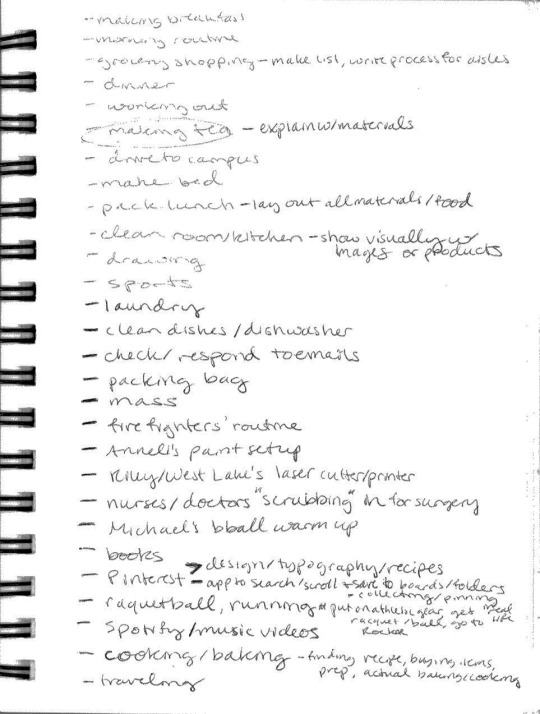 - making breakfast
- morning routine
- grocery shopping - make list, write process for aisles
- dinner
- working out
- making tea - explain w/materials
- drive to campus
- make bed
- pack lunch - lay out all materials/food
- clean room/kitchen - show visually w/
images or products
- drawing
- sports
- laundry
- clean dishes/dishwasher
- check/respond to emails
- packing bag
- mass
- firefighters' routine
- Anneli's paint setup
- Riley/West Lake's laser cutter/printer
- nurses/doctors "scrubbing" in for surgery
- Michael's bball warm up
- books
→ design/typography/recipes
- Pinterest - app to search/scroll + save to boards/folders
- collecting/pinning
- raquetball, running put on athletic gear, get
raquet/ball, go to
- Spotify/music videos
- cooking/baking - finding recipe, buying items,
prep, actual baking/cooking
- traveling